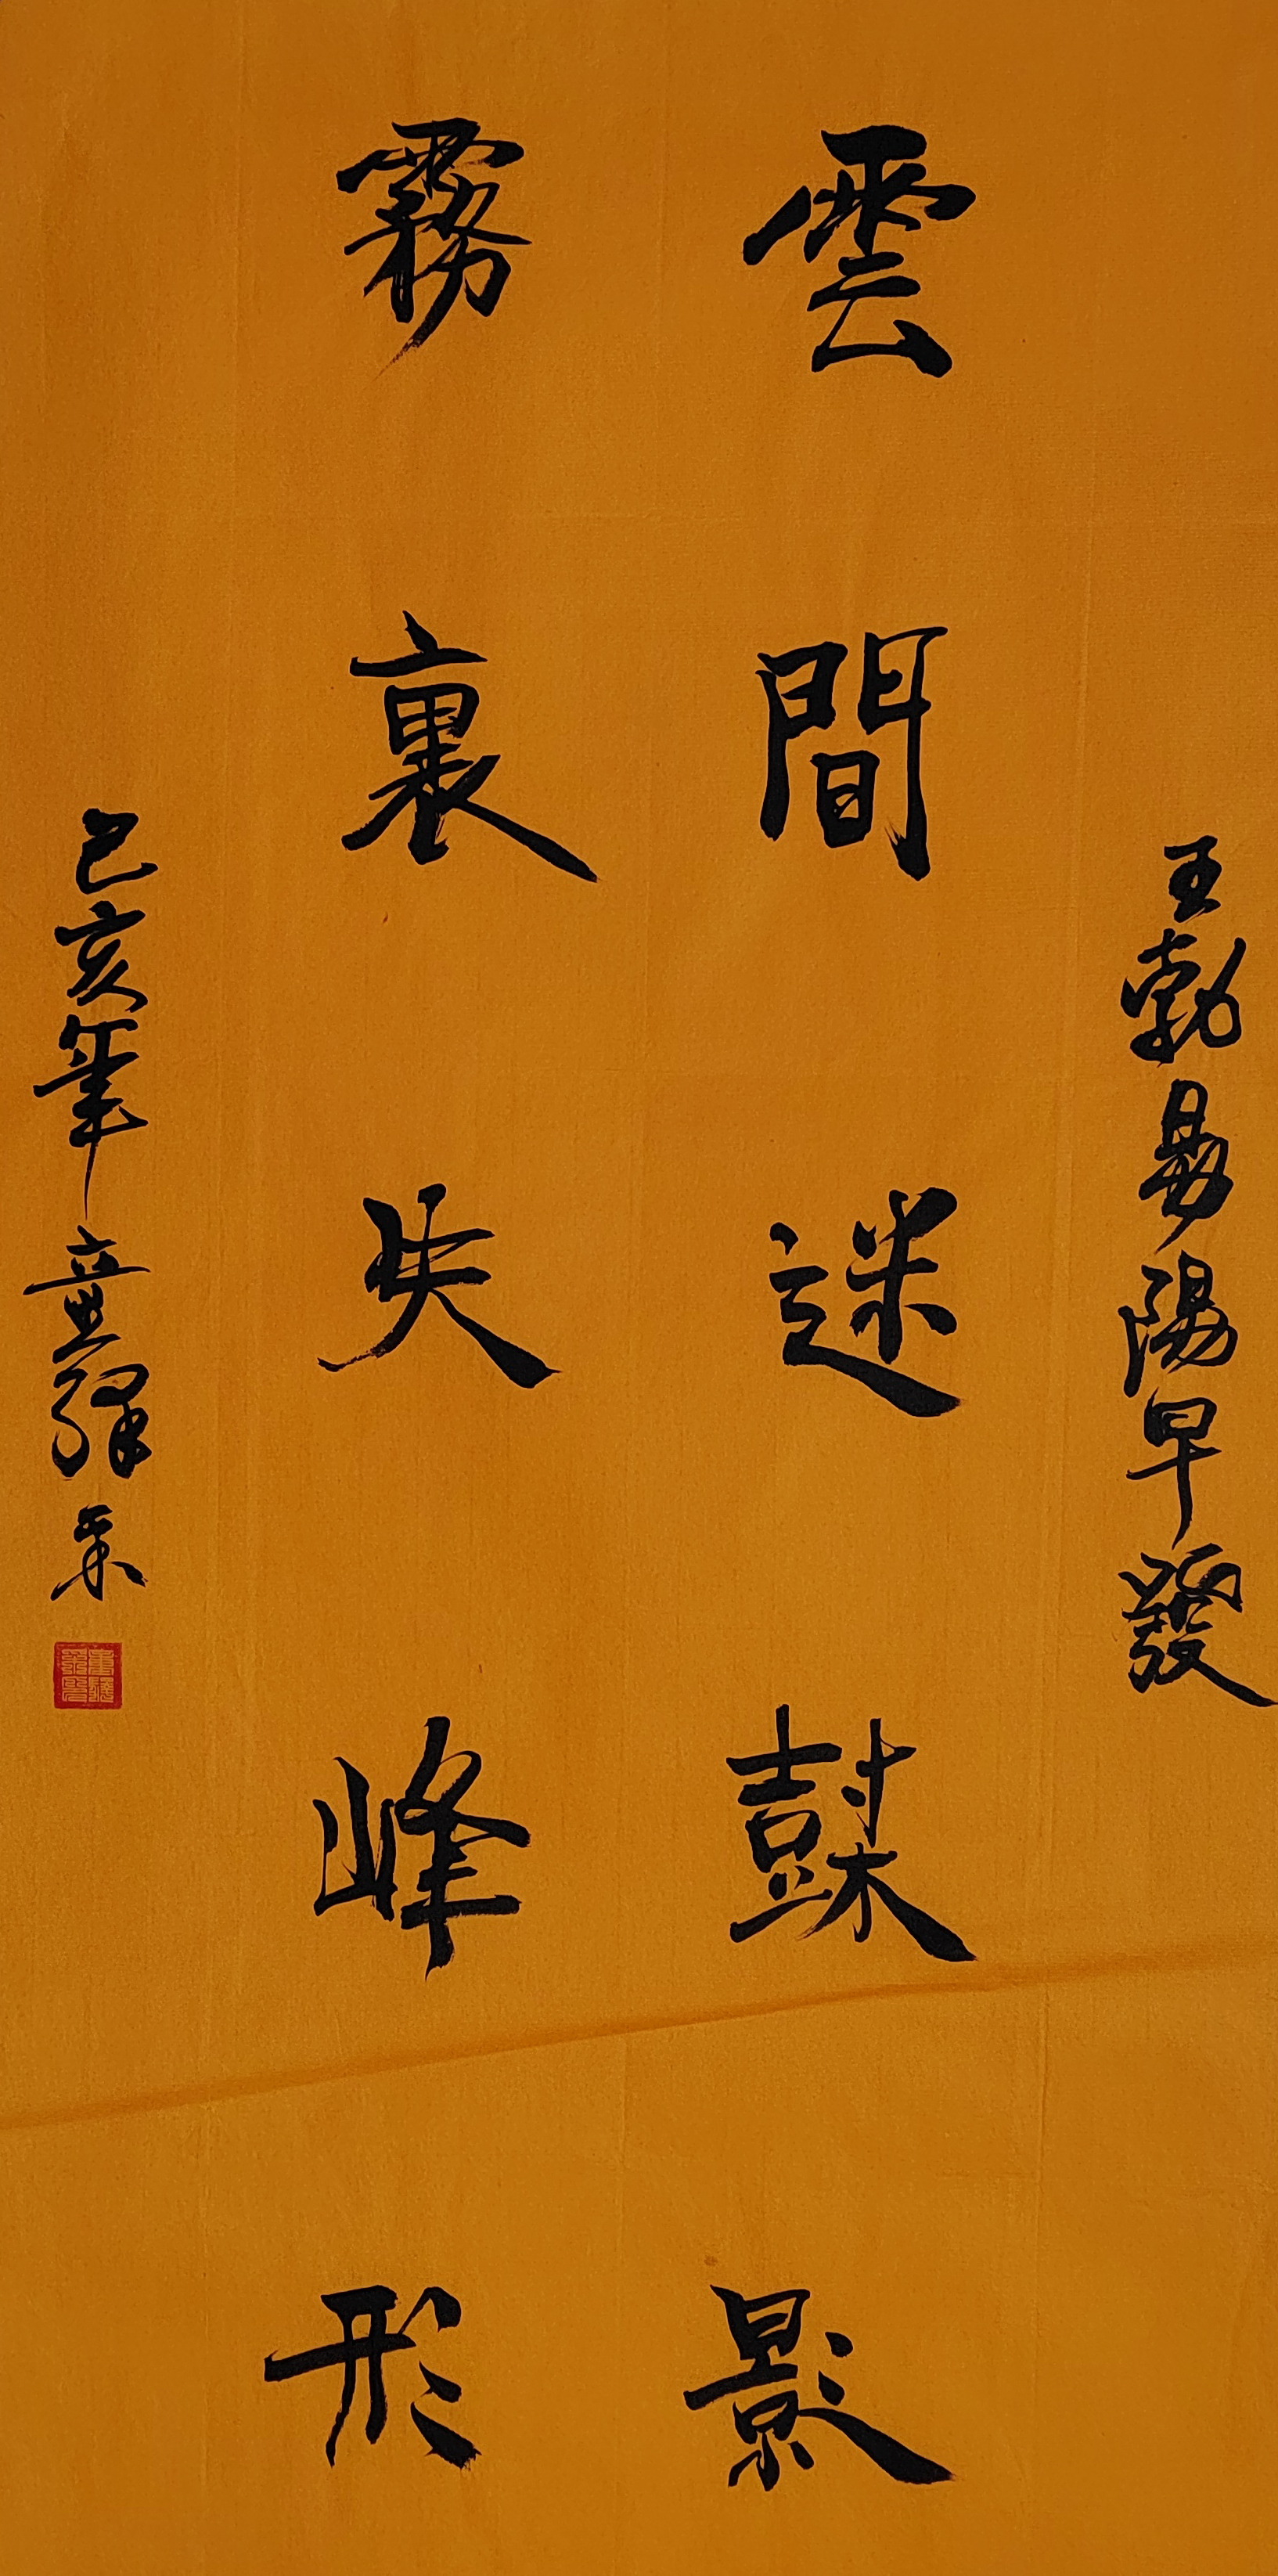 王勃易陽早發
雲間迷樹影
霧裏失峰形
己亥年